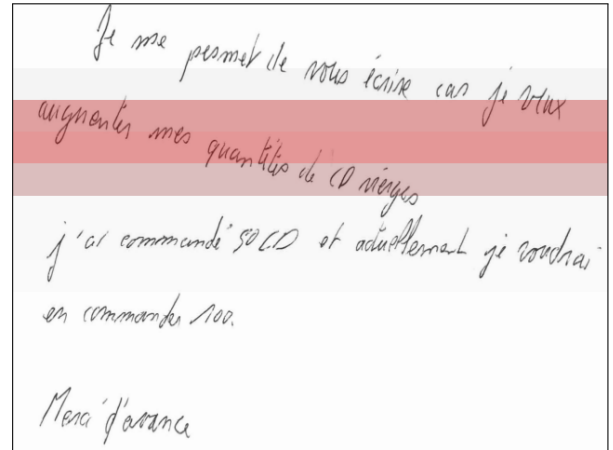 Je me permet de vous écrire car je veux
augmenter mes quantités de CD vierges
j'ai commandé 50 CD et actuellement je voudrai
en commander 100.
Merci d'avance